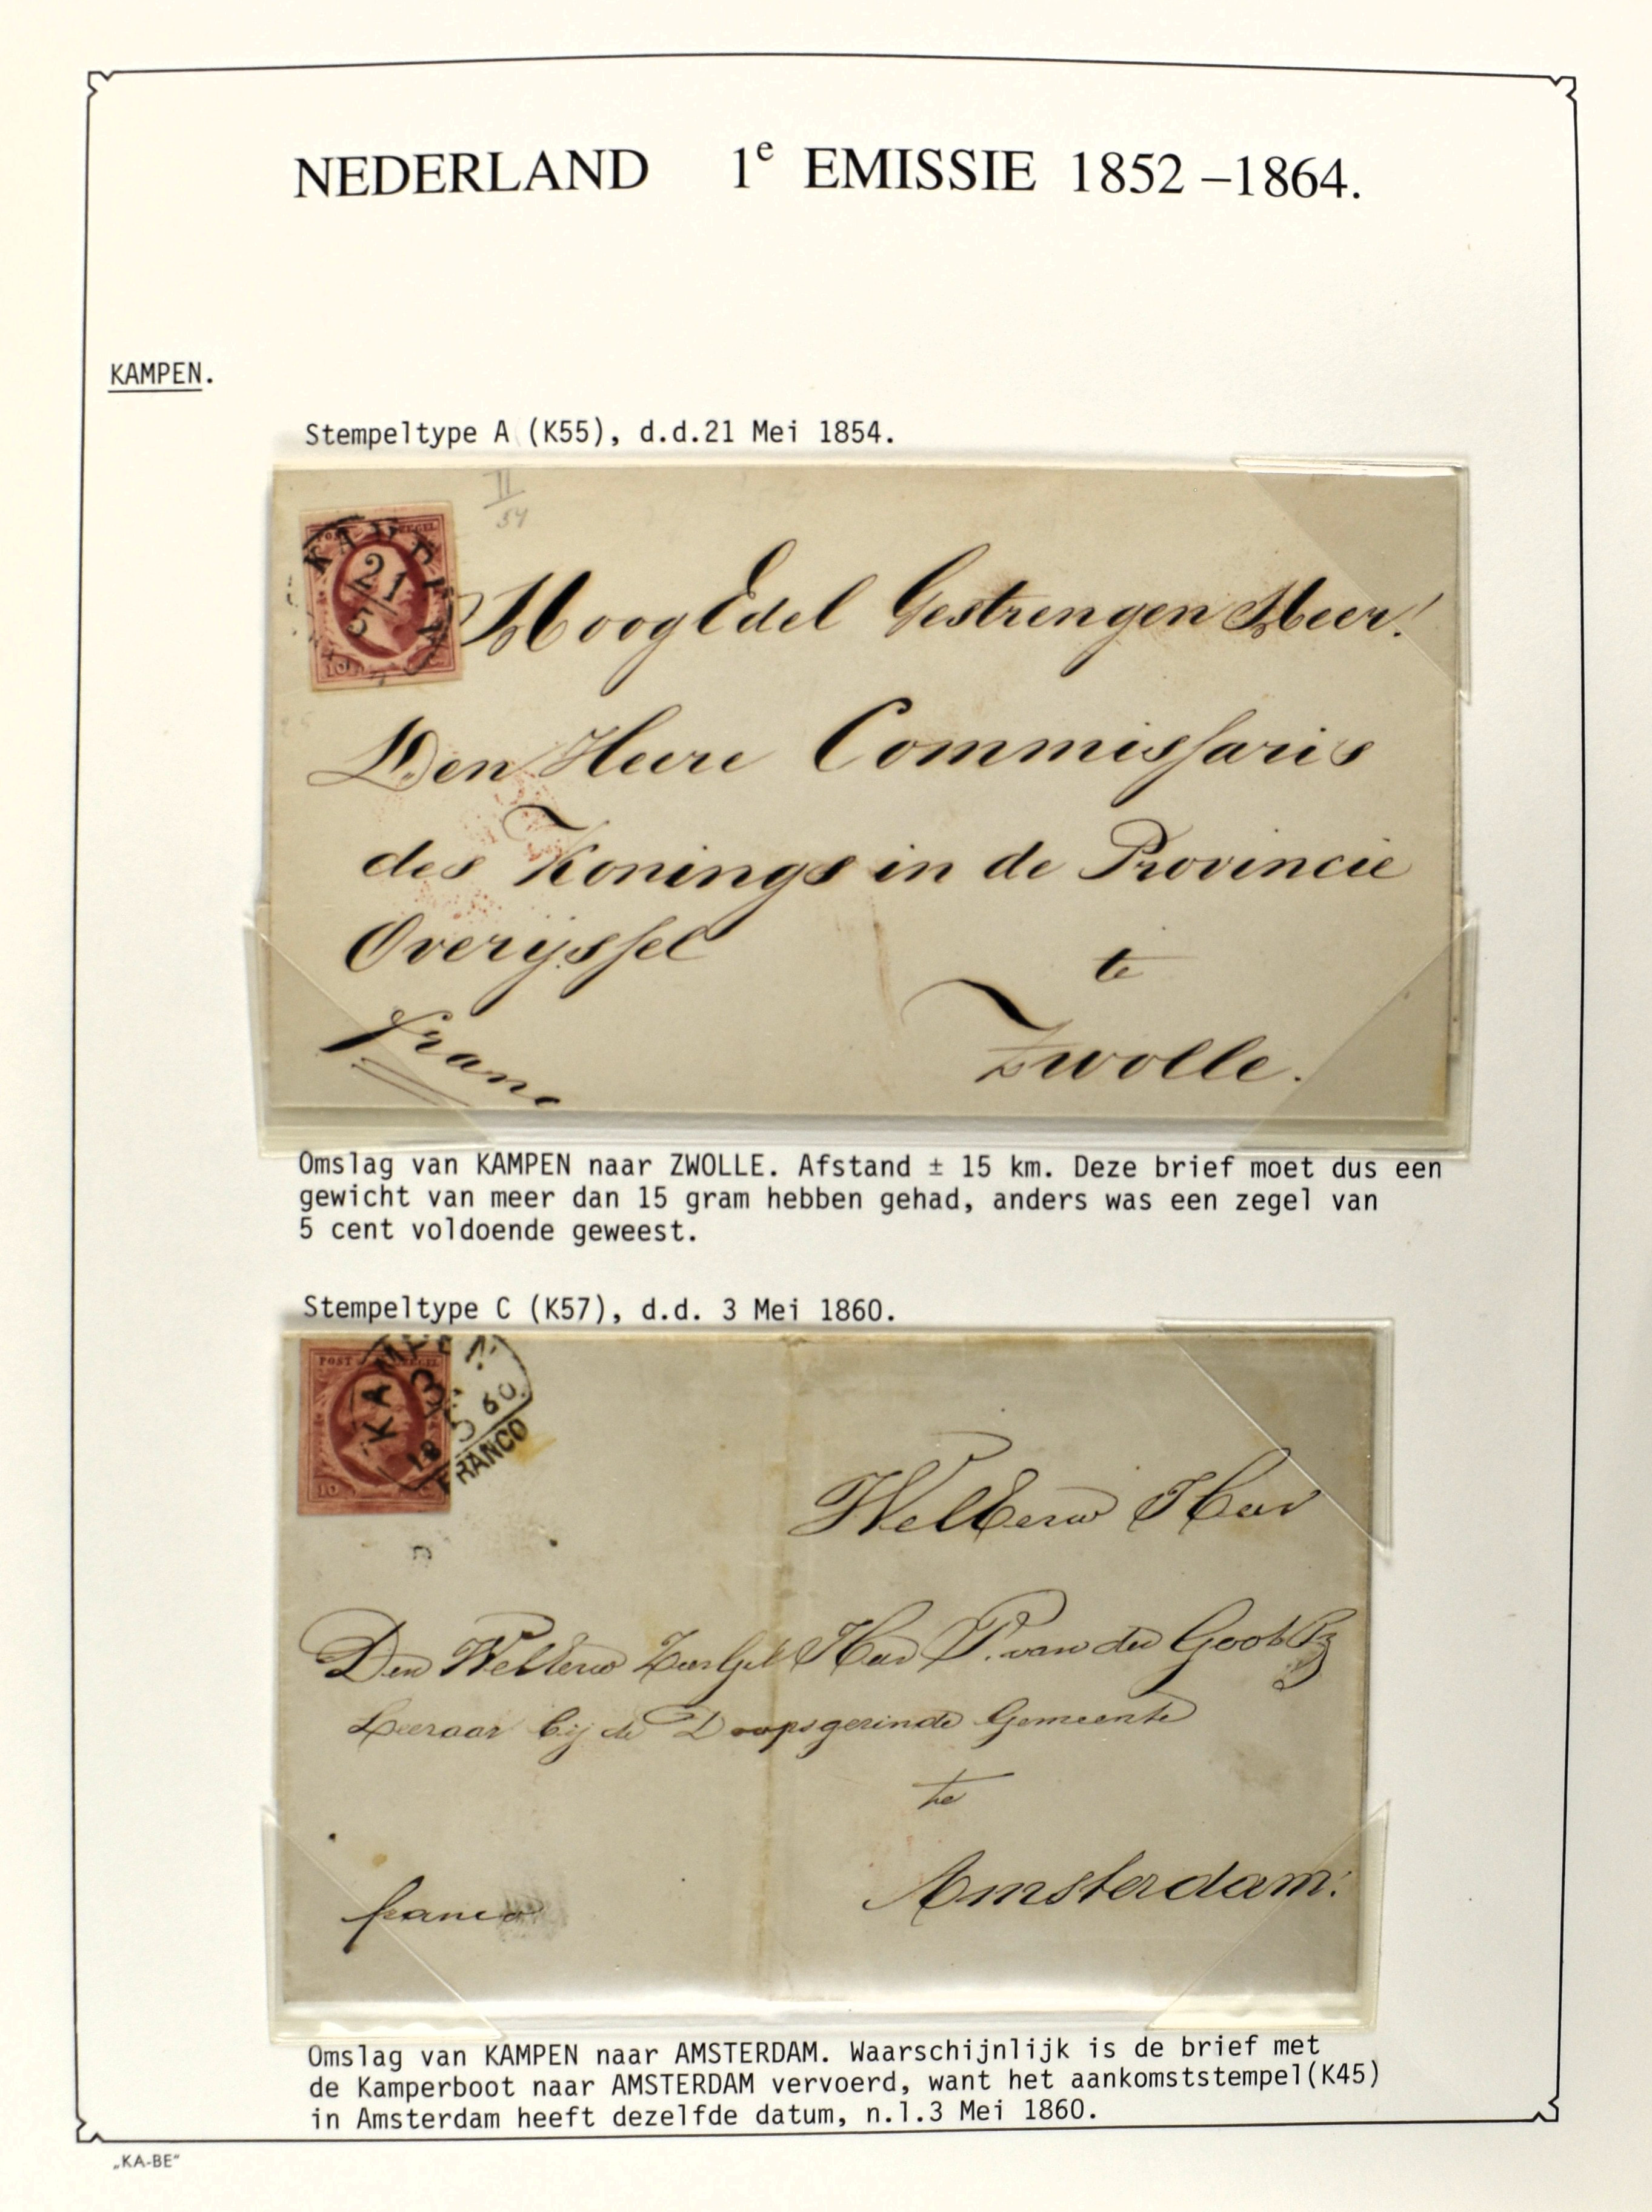 NEDERLAND 1e EMISSIE 1852 –1864.
KAMPEN.
Stempeltype A (K55), d.d.21 Mei 1854.
II
54
POST ZEGEL
KAMPEN
21
5
10
HoogEdel Gestrengen Heer!
Den Heere Commissaris
des Konings in de Provincie
Overijssel te
franc Zwolle.
Omslag van KAMPEN naar ZWOLLE. Afstand ± 15 km. Deze brief moet dus een
gewicht van meer dan 15 gram hebben gehad, anders was een zegel van
5 cent voldoende geweest.
Stempeltype C (K57), d.d. 3 Mei 1860.
POST ZEGEL
KAMPEN
3
5
18 60
FRANCO
10
WelEerw Heer
Den WelEerw Heer P. van der Goot
Leeraar bij de Doopsgezinde Gemeente
te
Amsterdam.
franco
Omslag van KAMPEN naar AMSTERDAM. Waarschijnlijk is de brief met
de Kamperboot naar AMSTERDAM vervoerd, want het aankomststempel(K45)
in Amsterdam heeft dezelfde datum, n.l.3 Mei 1860.
„KA-BE"